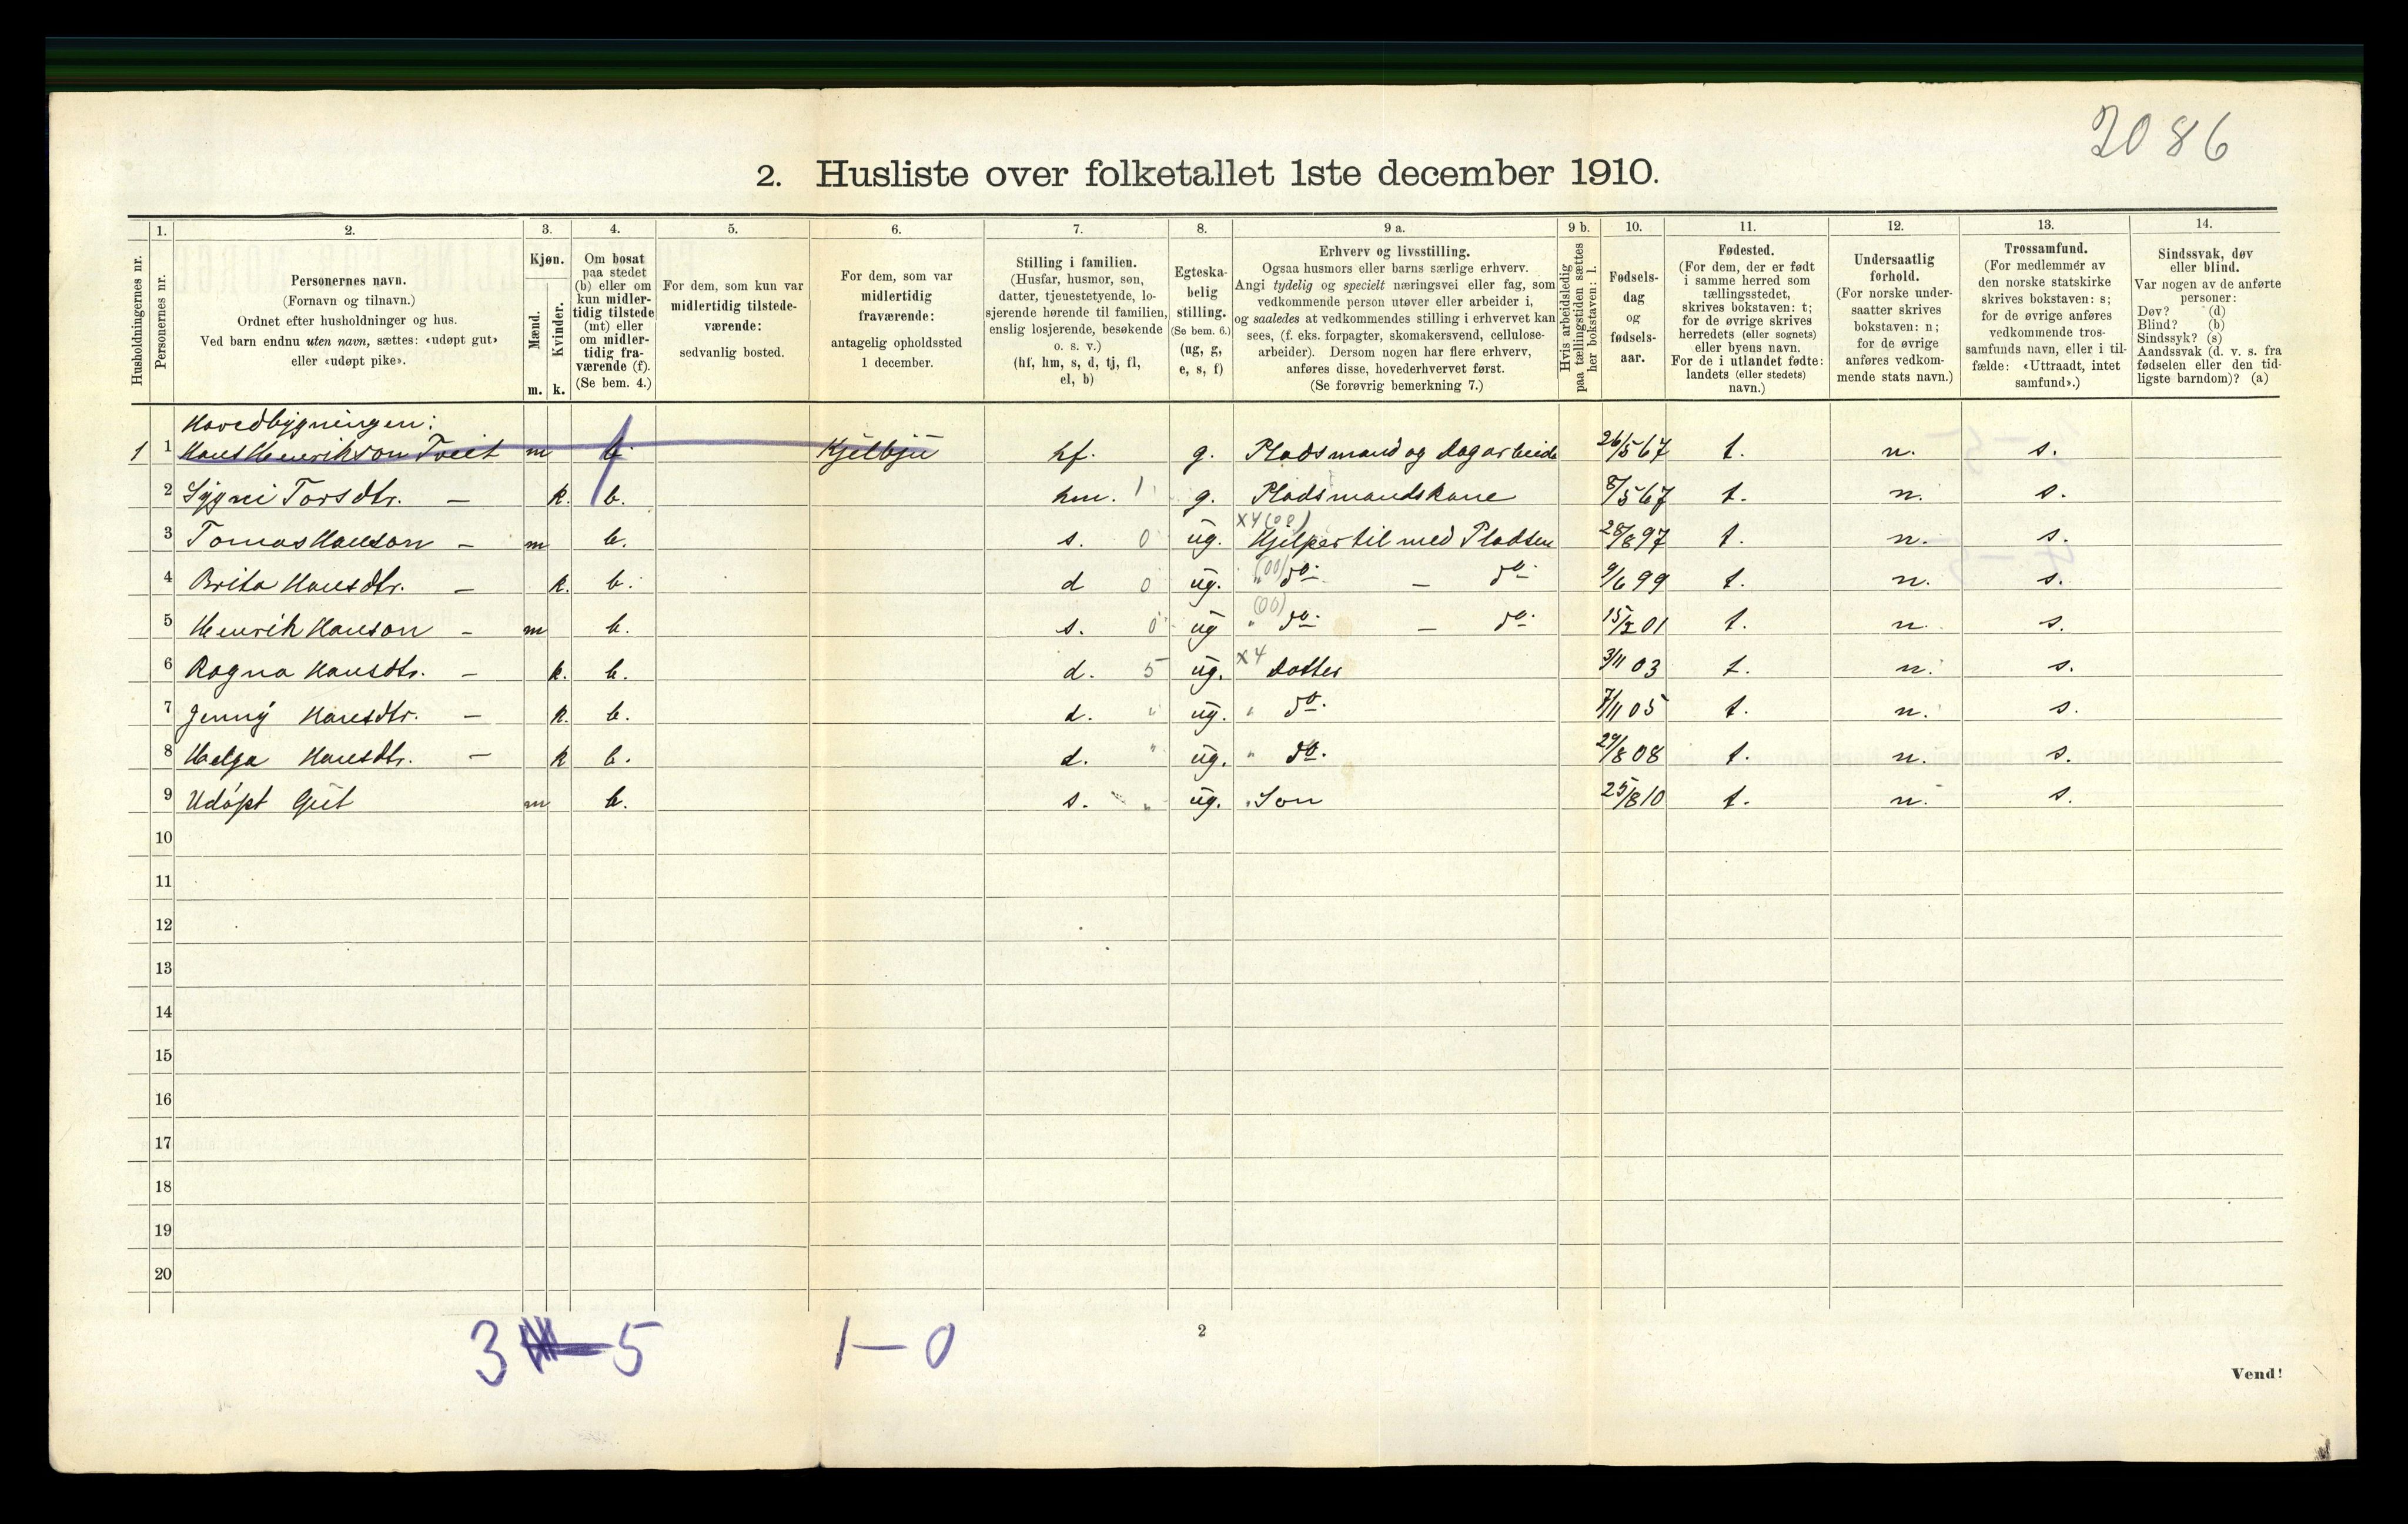 2086
2. Husliste over folketallet 1ste december 1910.
1. 2. 3. 4. 5. 6. 7. 8. 9 a. 9 b. 10. 11. 12. 13. 14.
Husholdningernes nr.
Personernes nr.
Personernes navn.
(Fornavn og tilnavn.)
Ordnet efter husholdninger og hus.
Ved barn endnu uten navn, sættes: «udøpt gut»
eller «udøpt pike».
Kjøn.
Mænd.
Kvinder.
m. k.
Om bosat
paa stedet
(b) eller om
kun midler-
tidig tilstede
(mt) eller
om midler-
tidig fra-
værende (f).
(Se bem. 4.)
For dem, som kun var
midlertidig tilstede-
værende:
sedvanlig bosted.
For dem, som var
midlertidig
fraværende:
antagelig opholdssted
1 december.
Stilling i familien.
(Husfar, husmor, søn,
datter, tjenestetyende, lo-
sjerende hørende til familien,
enslig losjerende, besøkende
o. s. v.)
(hf, hm, s, d, tj, fl,
el, b)
Egteska-
belig
stilling.
(Se bem. 6.)
(ug, g,
e, s, f)
Erhverv og livsstilling.
Ogsaa husmors eller barns særlige erhverv.
Angi tydelig og specielt næringsvei eller fag, som
vedkommende person utøver eller arbeider i,
og saaledes at vedkommendes stilling i erhvervet kan
sees, (f. eks. forpagter, skomakersvend, cellulose-
arbeider). Dersom nogen har flere erhverv,
anføres disse, hovederhvervet først.
(Se forøvrig bemerkning 7.)
Hvis arbeidsledig
paa tællingstiden sættes
her bokstaven: l.
Fødsels-
dag
og
fødsels-
aar.
Fødested.
(For dem, der er født
i samme herred som
tællingsstedet,
skrives bokstaven: t;
for de øvrige skrives
herredets (eller sognets)
eller byens navn.
For de i utlandet fødte:
landets (eller stedets)
navn.)
Undersaatlig
forhold.
(For norske under-
saatter skrives
bokstaven: n;
for de øvrige
anføres vedkom-
mende stats navn.)
Trossamfund.
(For medlemmer av
den norske statskirke
skrives bokstaven: s;
for de øvrige anføres
vedkommende tros-
samfunds navn, eller i til-
fælde: «Uttraadt, intet
samfund».)
Sindssvak, døv
eller blind.
Var nogen av de anførte
personer:
Døv? (d)
Blind? (b)
Sindssyk? (s)
Aandssvak (d. v. s. fra
fødselen eller den tid-
ligste barndom)? (a)
Hovedbygningen:
1 1 Hans Henrikson Tveit m Kjelbju hf. g. Pladsmand og dagarbeide 26/5 67 t. n. s.
2 Sygni Torsdtr. — k. b. hm. 1 g. Pladsmandskone 8/5 67 t. n. s.
X4 (00)
3 Tomas Hanson — m b. s. 0 ug. Hjelper til med Pladsen 28/8 97 t. n. s.
4 Brita Hansdtr. — k. b. d 0 ug. " (00) do. — do. 9/6 99 t. n. s.
5 Henrik Hanson — m b. s. 0 ug " (00) do. — do. 15/2 01 t. n. s.
6 Ragna Hansdtr. — k. b. d. 5 ug. X4 Datter 3/11 03 t. n. s.
7 Jenny Hansdtr. — k. b. d. " ug. " do. 7/11 05 t. n. s.
8 Helga Hansdtr. — k b. d. " ug. " do. 29/8 08 t. n. s.
9 Udöpt Gut m b. s. " ug. " Son 25/8 10 t. n. s.
10
11
12
13
14
15
16
17
18
19
20
3 — 5 1 — 0
2
Vend!